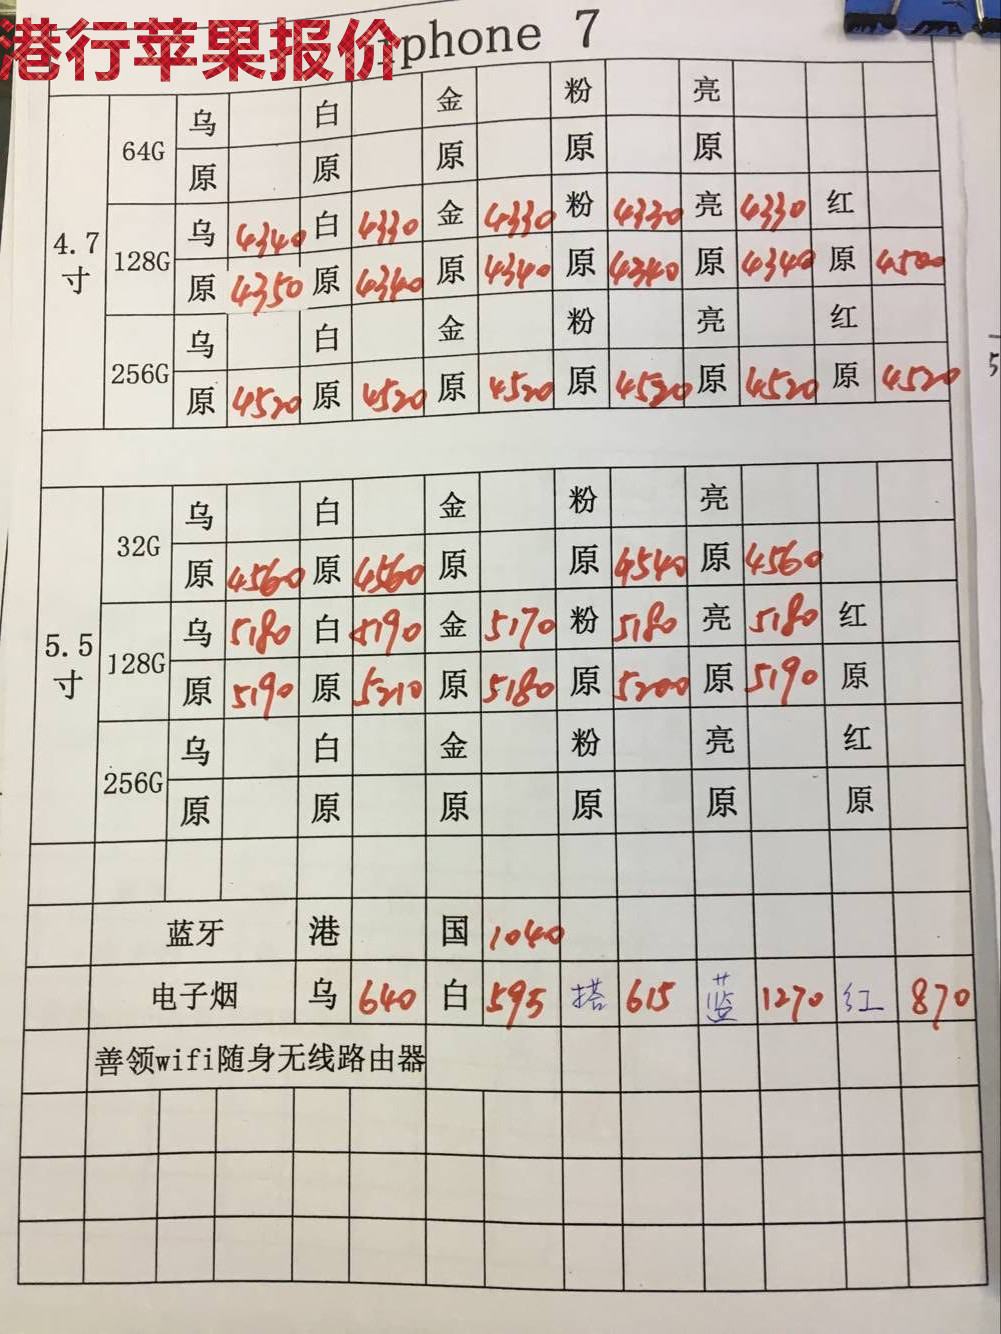 港行苹果报价
iphone 7
4.7寸
64G
乌 白 金 粉 亮
原 原 原 原 原
128G
乌 4340 白 4330 金 4330 粉 4330 亮 4330 红
原 4350 原 4340 原 4340 原 4340 原 4340 原 4500
256G
乌 白 金 粉 亮 红
原 4520 原 4520 原 4520 原 4520 原 4520 原 4520
5.5寸
32G
乌 白 金 粉 亮
原 4560 原 4560 原 原 4540 原 4560
128G
乌 5180 白 5190 金 5170 粉 5180 亮 5180 红
原 5190 原 5210 原 5180 原 5200 原 5190 原
256G
乌 白 金 粉 亮 红
原 原 原 原 原 原
蓝牙 港 国 1040
电子烟 乌 640 白 595 搭 615 蓝 1270 红 870
善领wifi随身无线路由器